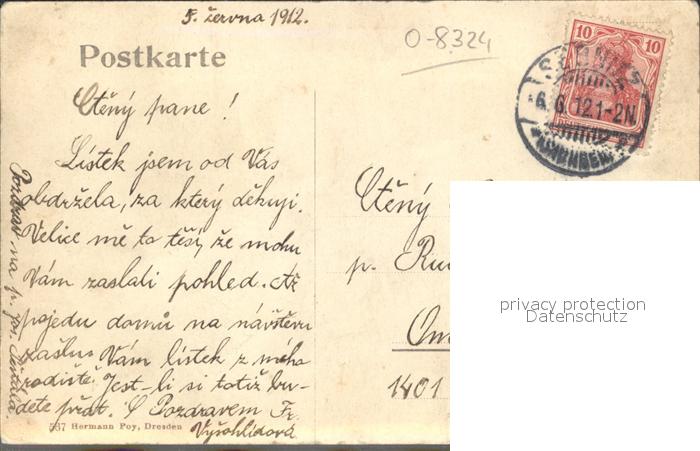 5. června 1912.
O-8324
Postkarte
10 10
6.6.12.1-2N.
Ctěný pane!
Lístek jsem od Vás
obdržela, za který děkuji.
Velice mě to těší, že mohu
Vám zaslati pohled. Až
pojedu domů na návštěvu
zašlu Vám lístek z mého
rodiště. Jest-li si totiž bu-
dete přát. S Pozdravem Fr.
Vyšohlídová
Pozdrav na p.
Ctěný
p.
1401
privacy protection
Datenschutz
537 Hermann Poy, Dresden